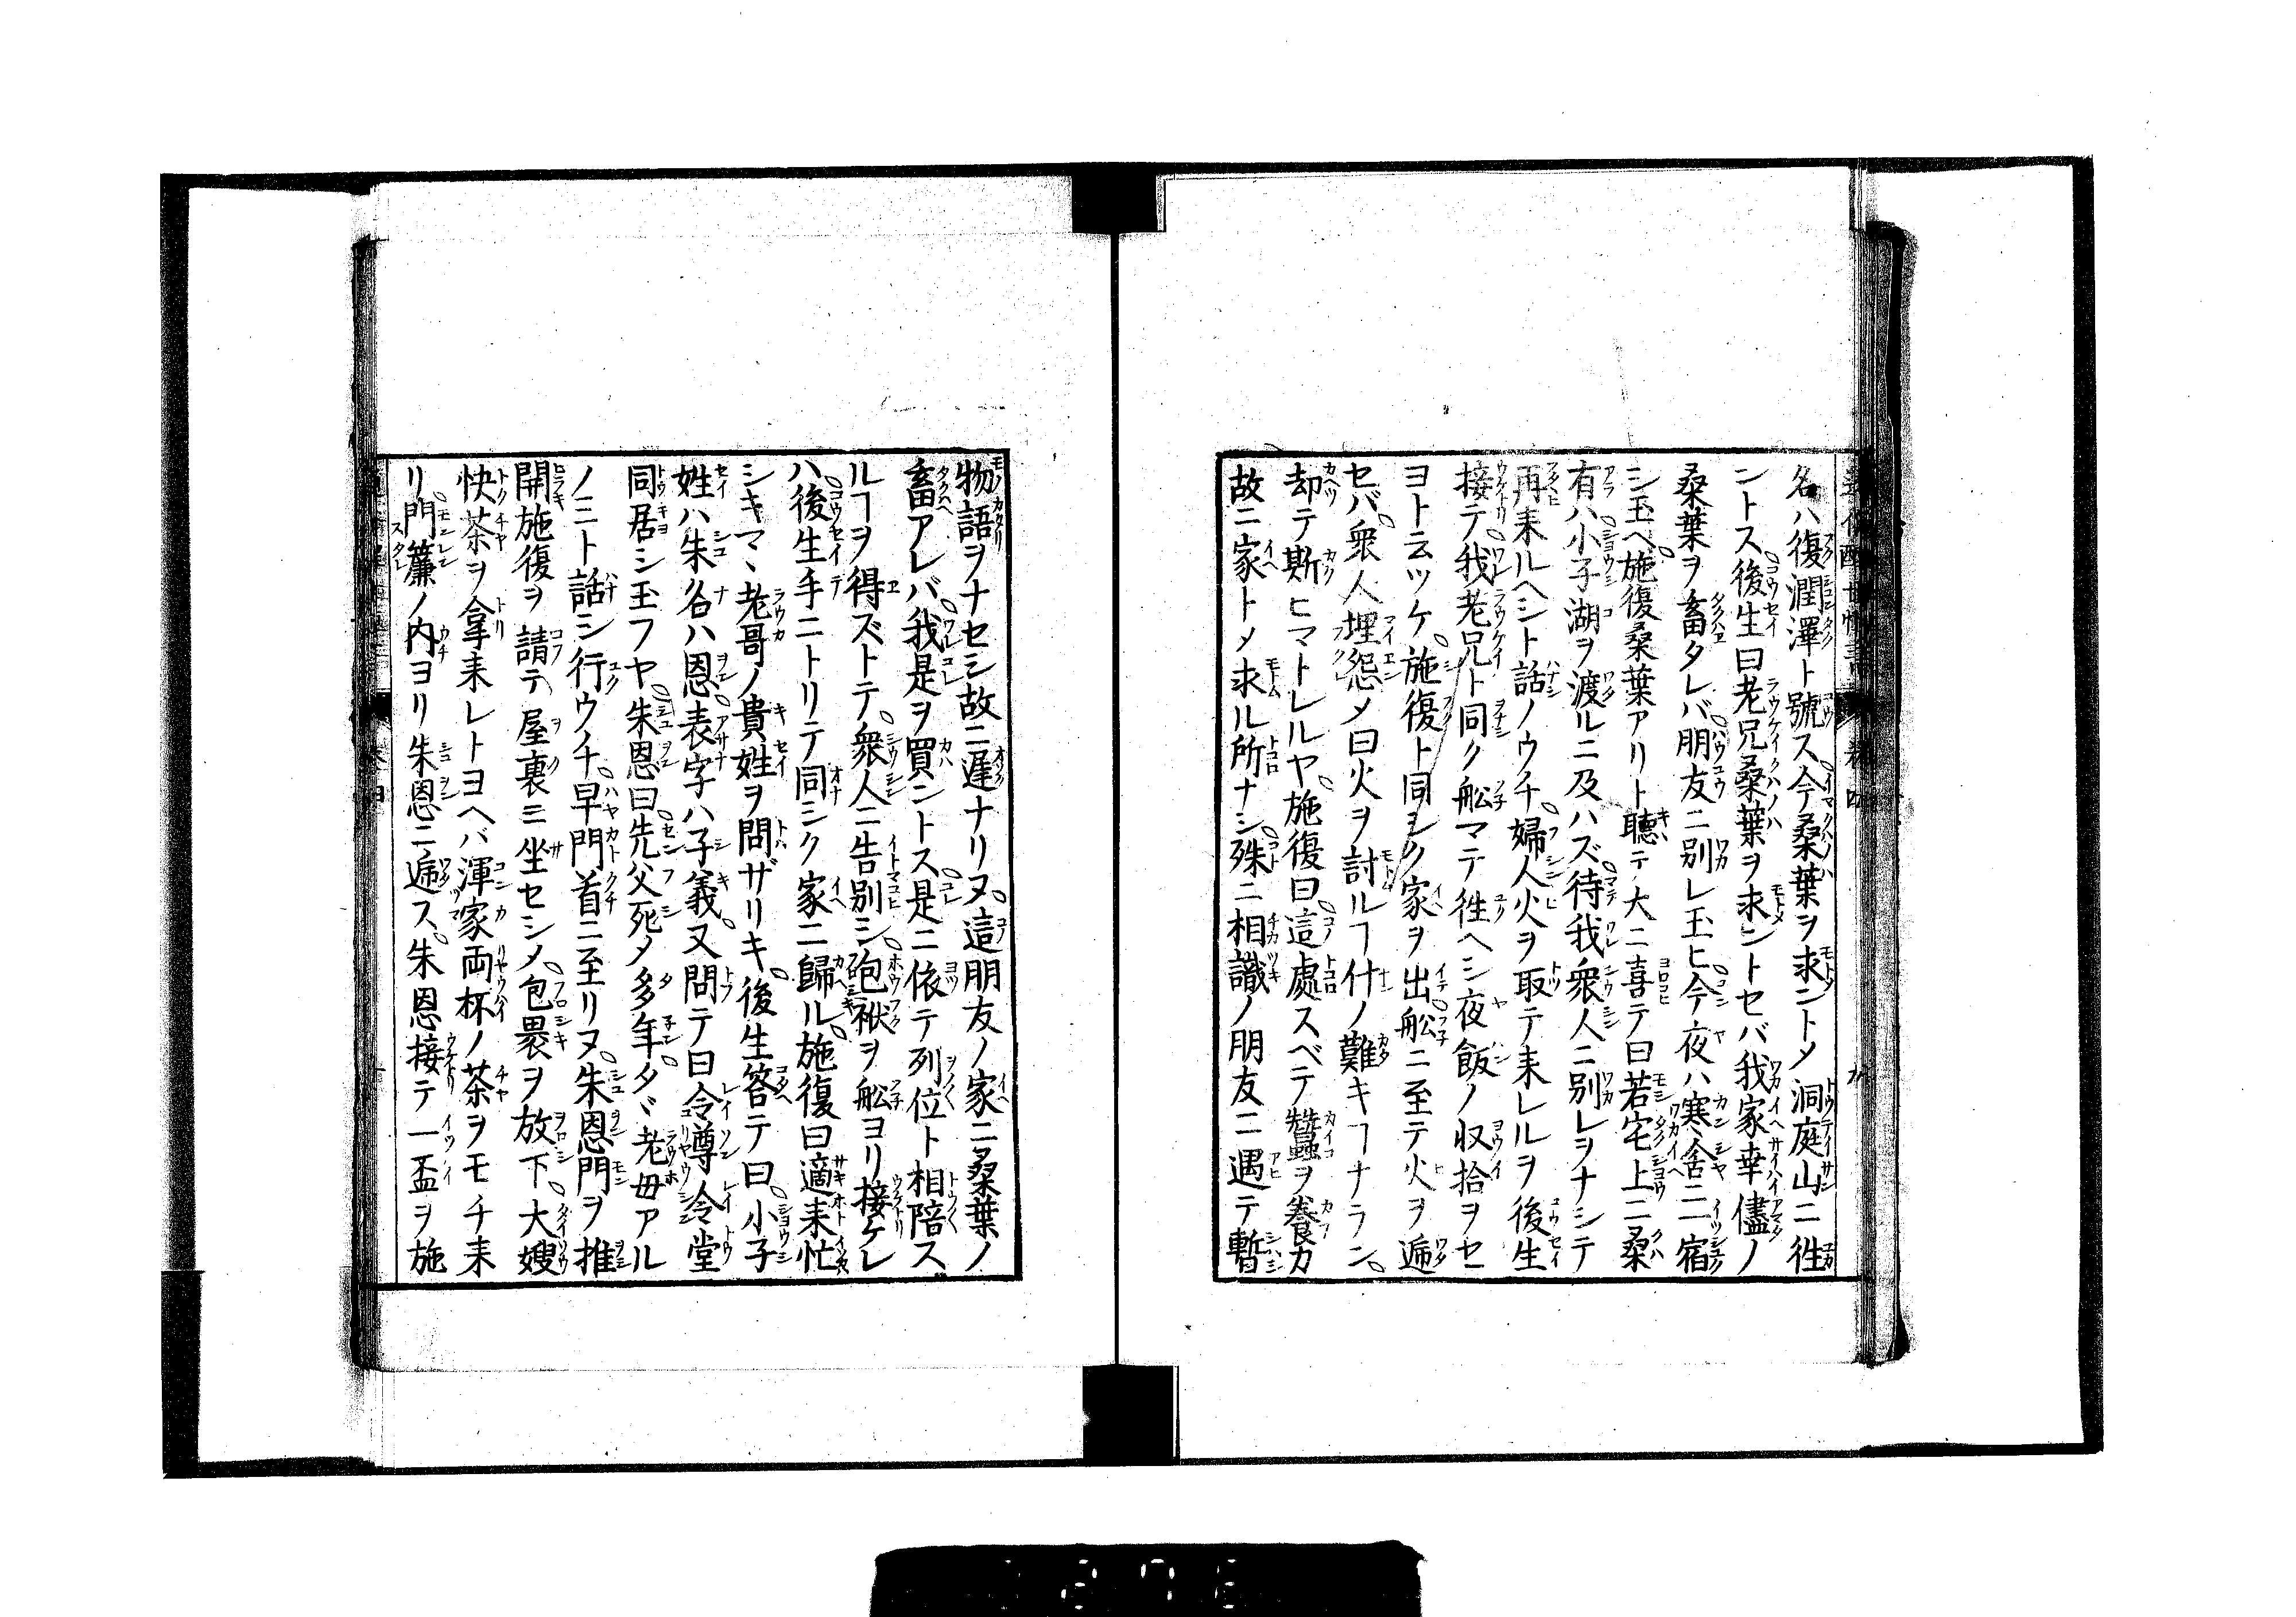 名ハ復潤澤ト號ス今桑葉ヲ求ントメ洞庭山ニ徃
ントス後生曰老兄桑葉ヲ求ントセバ我家幸儘ノ
桑葉ヲ畜タレバ朋友ニ別レ玉ヒ今夜ハ寒舎ニ一宿
シ玉ヘ施復桑葉アリト聴テ大ニ喜テ曰若宅上ニ桑
有ハ小子湖ヲ渡ルニ及ハズ待我衆人ニ別レヲナシテ
再耒ルヘシト話ノウチ婦人火ヲ取テ耒レルヲ後生
接テ我老兄ト同ク舩マテ徃ヘシ夜飯ノ収拾ヲセ
ヨト云ツケ施復ト同シク家ヲ出舩ニ至テ火ヲ遞
セバ衆人埋怨メ曰火ヲ討ルヿ什ノ難キヿナラン
却テ斯ヒマトレルヤ施復曰這處スベテ蠶ヲ養カ
故ニ家トメ求ル所ナシ殊ニ相識ノ朋友ニ遇テ暫
物語ヲナセシ故ニ遅ナリヌ這朋友ノ家ニ桑葉ノ
畜アレバ我是ヲ買ントス是ニ依テ列位ト相陪ス
ルヿヲ得ズトテ衆人ニ告別シ砲袱ヲ舩ヨリ接ケレ
ハ後生手ニトリテ同シク家ニ歸ル施復曰適耒忙
シキマヽ老哥ノ貴姓ヲ問ザリキ後生答テ曰小子
姓ハ朱名ハ恩表字ハ子義又問テ曰令尊令堂
同居シ玉フヤ朱恩曰先父死メ多年タヾ老毋アル
ノミト話シ行ウチ早門首ニ至リヌ朱恩門ヲ推
開施復ヲ請テ屋裏ニ坐セシメ包褁ヲ放下大嫂
快茶ヲ拿耒レトヨヘバ渾家両杯ノ茶ヲモチ耒
リ門簾ノ内ヨリ朱恩ニ遞ス朱恩接テ一盃ヲ施